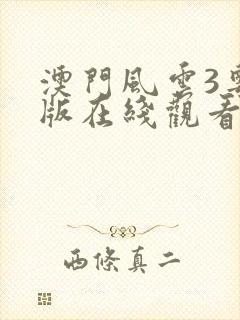 澳門風雲3
版在綫觀看
西條真二